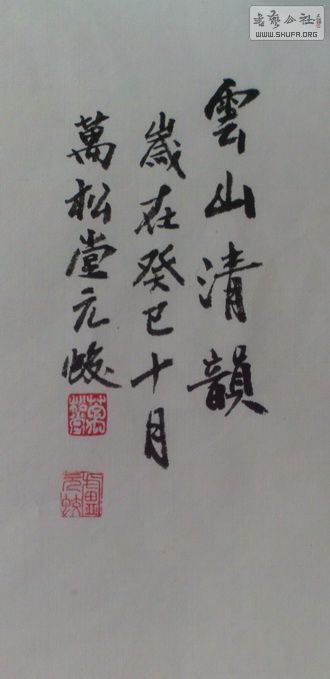 雲山清韻
歲在癸巳十月
萬松堂元峻
書藝公社
WWW.SHUFA.ORG